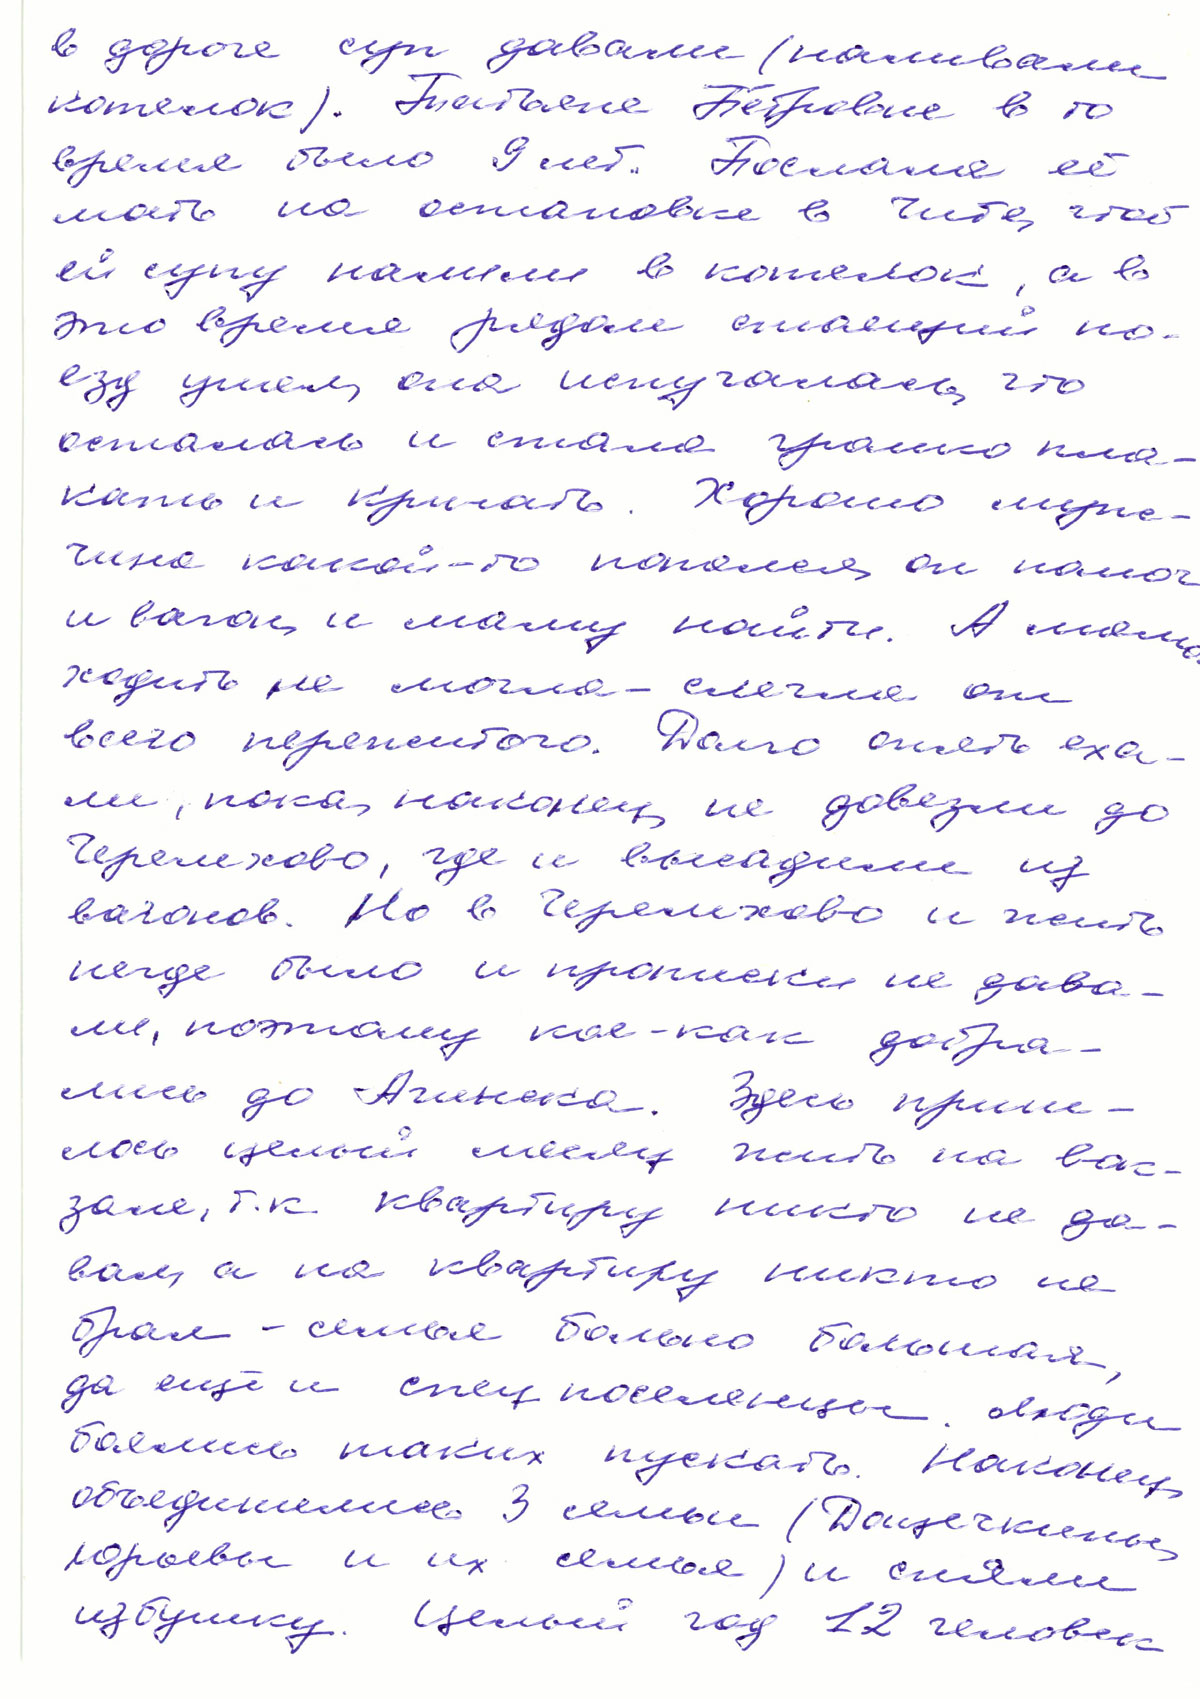 в дороге суп давали (наливали
котелок). Татьяне Петровне в то
время было 9 лет. Послала её
мать на остановке в Чите, чтоб
ей супу налили в котелок, а в
это время рядом стоящий по-
езд ушел, она испугалась, что
осталась и стала громко пла-
кать и кричать. Хорошо муж-
чина какой-то попался, он помог
и вагон, и маму найти. А мама
ходить не могла - слегла от
всего пережитого. Долго опять еха-
ли, пока, наконец, не довезли до
Черемхово, где и высадили из
вагонов. Но в Черемхово и жить
негде было и прописки не дава-
ли, поэтому кое-как добра-
лись до Ачинска. Здесь приш-
лось целый месяц жить на вок-
зале, т.к. квартиру никто не да-
вал, а на квартиру никто не
брал - семья больно большая,
да ещё и спец поселенцы. Люди
боялись таких пускать. Наконец
объединились 3 семьи (Дощечкины,
Юрьевы и их семья) и сняли
избушку. Целый год 12 человек